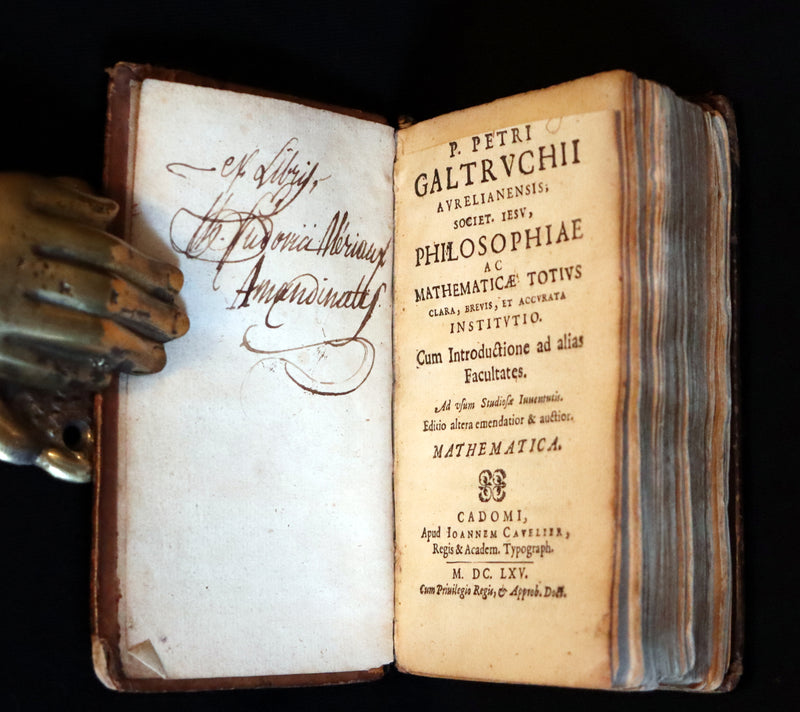 ex Libris
Ludovici Meriaux
Amandinatis
P. PETRI
GALTRVCHII
AVRELIANENSIS,
SOCIET. IESV,
PHILOSOPHIAE
AC
MATHEMATICÆ TOTIVS
CLARA, BREVIS, ET ACCVRATA
INSTITVTIO.
Cum Introductione ad alias
Facultates.
Ad vsum Studiosæ Iuuentutis.
Editio altera emendatior & auctior.
MATHEMATICA.
CADOMI,
Apud IOANNEM CAVELIER,
Regis & Academ. Typograph.
M. DC. LXV.
Cum Priuilegio Regis, & Approb. Doct.